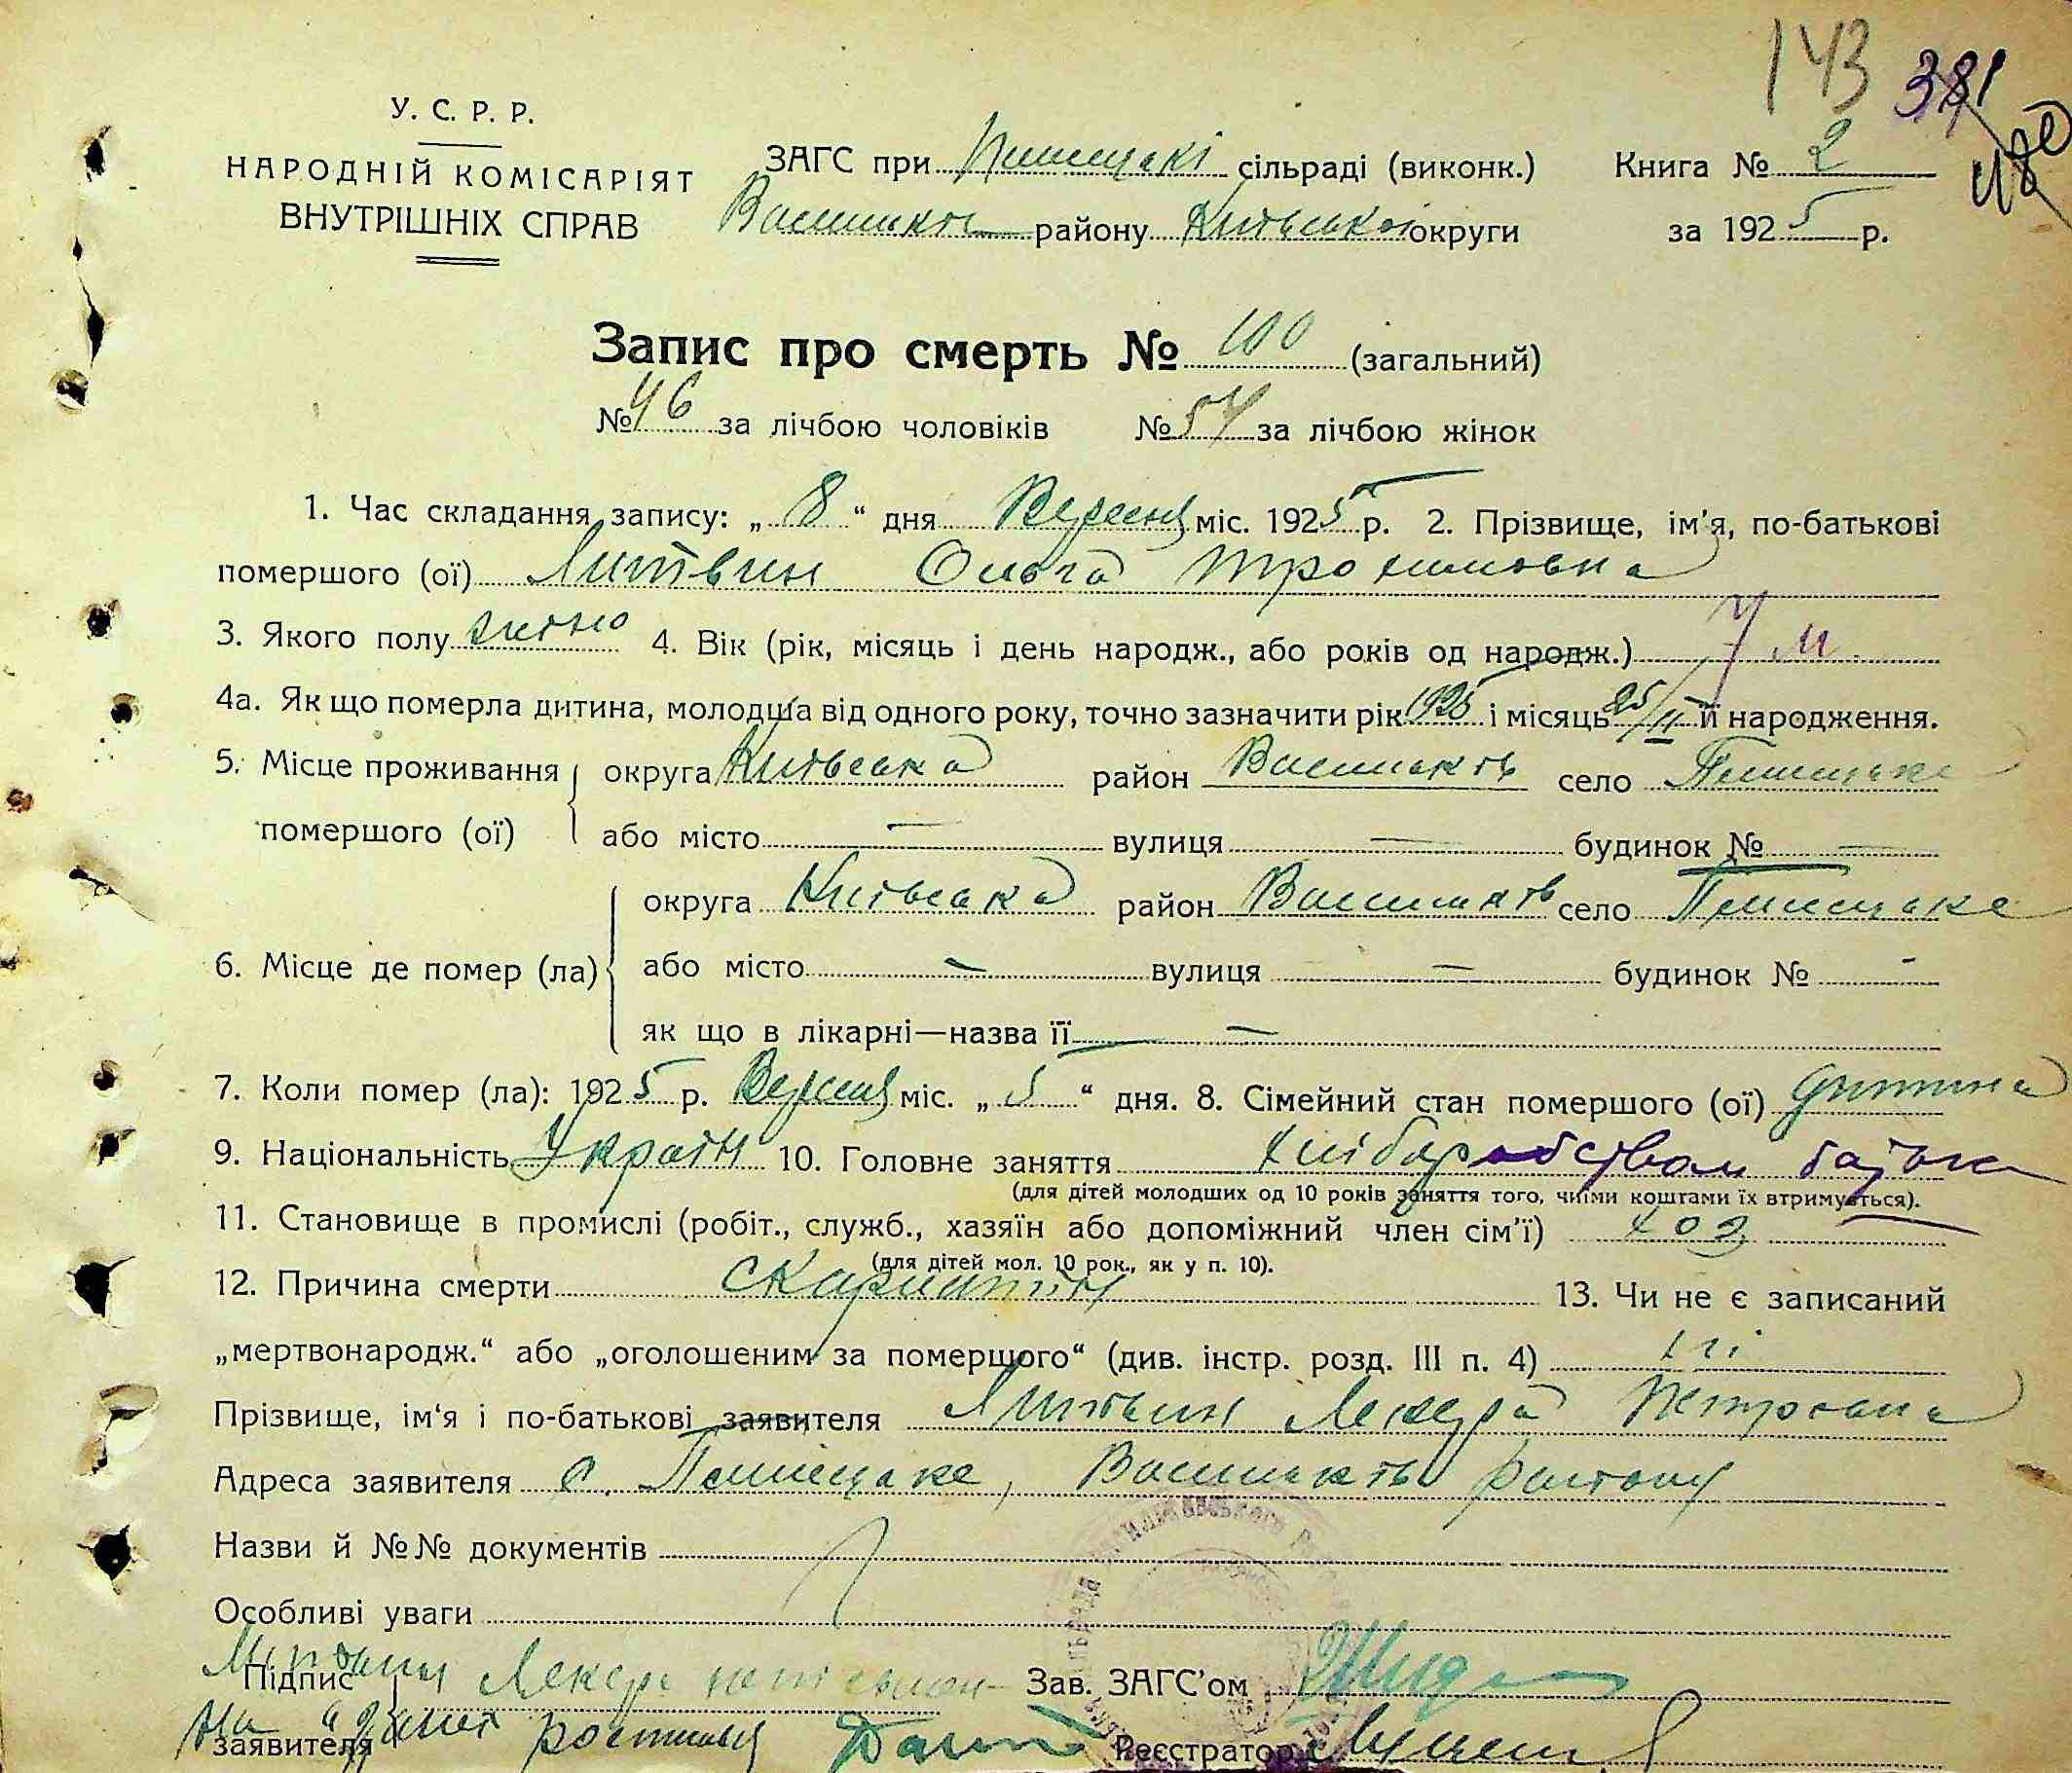 143 381
У. С. Р. Р.
НАРОДНІЙ КОМІСАРІЯТ
ВНУТРІШНІХ СПРАВ
ЗАГС при сільраді (виконк.) Книга № 2
району Київської округи за 1925 р.
Запис про смерть № 100 (загальний)
№ 46 за лічбою чоловіків № 54 за лічбою жінок
1. Час складання запису: „ 8 “ дня Вересня міс. 1925 р. 2. Прізвище, ім'я, по-батькові
помершого (ої) Литвин Ольга Трохимовна
3. Якого полу жіно 4. Вік (рік, місяць і день народж., або років од народж.) 7 м.
4а. Як що померла дитина, молодша від одного року, точно зазначити рік 1925 і місяць 25/II й народження.
5. Місце проживання округа Київська район село
помершого (ої) або місто — вулиця — будинок № —
округа Київська район село
6. Місце де помер (ла) або місто — вулиця — будинок № -
як що в лікарні—назва її —
7. Коли помер (ла): 1925 р. Вересня міс. „ 5 “ дня. 8. Сімейний стан помершого (ої) дитина
9. Національність Україн 10. Головне заняття хліборобством батька
(для дітей молодших од 10 років заняття того, чиїми коштами їх втримується).
11. Становище в промислі (робіт., служб., хазяїн або допоміжний член сім'ї) хоз.
(для дітей мол. 10 рок., як у п. 10).
12. Причина смерти скарлатин 13. Чи не є записаний
„мертвонародж.“ або „оголошеним за померщого“ (див. інстр. розд. III п. 4) ні
Прізвище, ім'я і по-батькові заявителя Литвин Петровна
Адреса заявителя с. району
Назви й №№ документів
Особливі уваги
Підпис Литвин Зав. ЗАГС'ом
заявителя Реєстратор